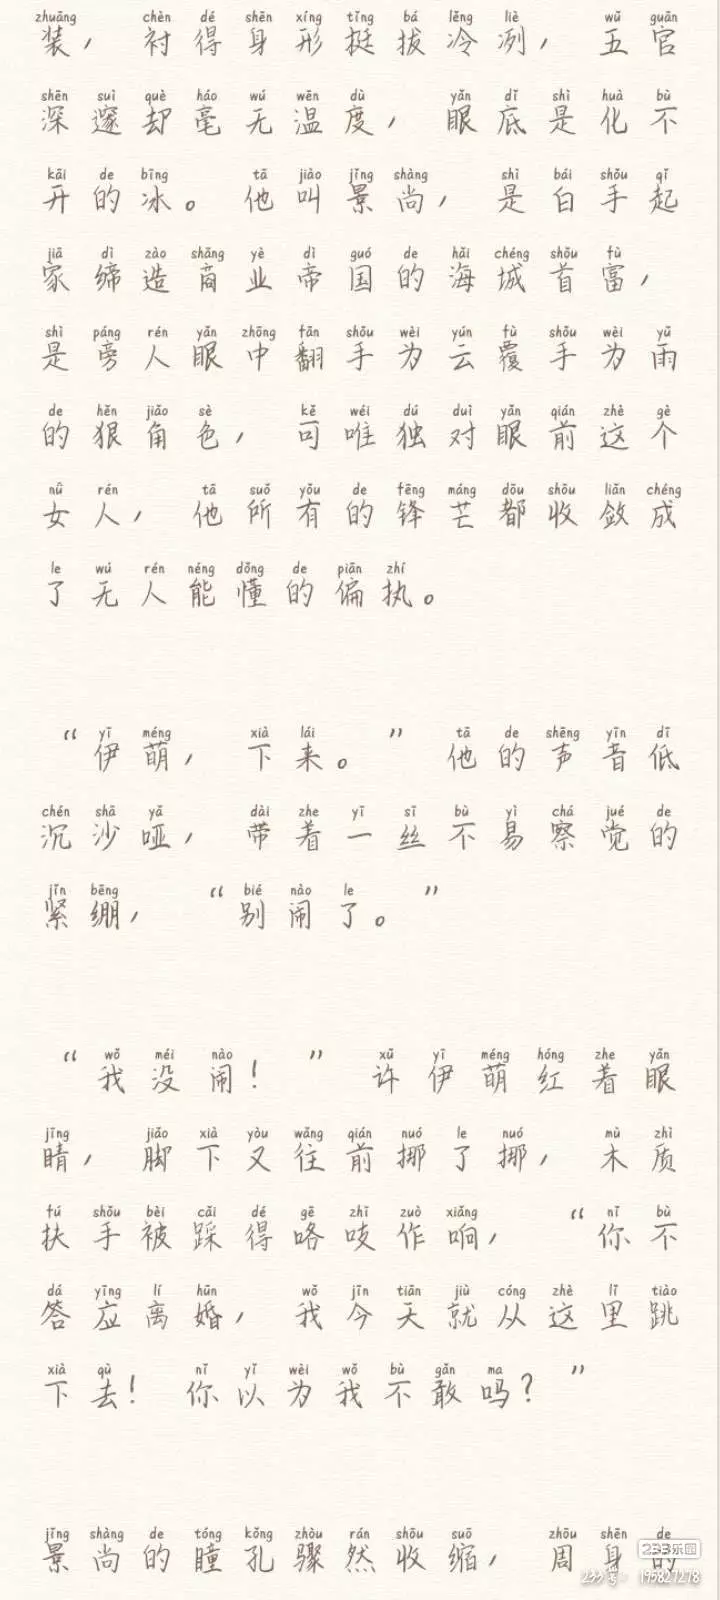 zhuāng chèn dé shēn xíng tǐng bá lěng liè wǔ guān
装，衬得身形挺拔冷冽，五官
shēn suì què háo wú wēn dù yǎn dǐ shì huà bù
深邃却毫无温度，眼底是化不
kāi de bīng tā jiào jǐng shàng shì bái shǒu qǐ
开的冰。他叫景尚，是白手起
jiā dì zào shāng yè dì guó de hǎi chéng shǒu fù
家缔造商业帝国的海城首富，
shì páng rén yǎn zhōng fān shǒu wèi yún fù shǒu wèi yǔ
是旁人眼中翻手为云覆手为雨
de hěn jiǎo sè kě wéi dú duì yǎn qián zhè gè
的狠角色，可唯独对眼前这个
nǚ rén tā suǒ yǒu de fēng máng dōu shōu liǎn chéng
女人，他所有的锋芒都收敛成
le wú rén néng dǒng de piān zhí
了无人能懂的偏执。
yī méng xià lái tā de shēng yīn dī
“伊萌，下来。”他的声音低
chén shā yǎ dài zhe yī sī bù yì chá jué de
沉沙哑，带着一丝不易察觉的
jǐn bēng bié nào le
紧绷，“别闹了。”
wǒ méi nào xǔ yī méng hóng zhe yǎn
“我没闹！”许伊萌红着眼
jīng jiǎo xià yòu wǎng qián nuó le nuó mù zhì
睛，脚下又往前挪了挪，木质
fú shǒu bèi cǎi dé gē zhī zuò xiǎng nǐ bù
扶手被踩得咯吱作响，“你不
dá yīng lí hūn wǒ jīn tiān jiù cóng zhè lǐ tiào
答应离婚，我今天就从这里跳
xià qù nǐ yǐ wèi wǒ bù gǎn ma
下去！你以为我不敢吗？”
jǐng shàng de tóng kǒng zhòu rán shōu suō zhōu shēn de
景尚的瞳孔骤然收缩，周身的
233乐园
233号：195827278